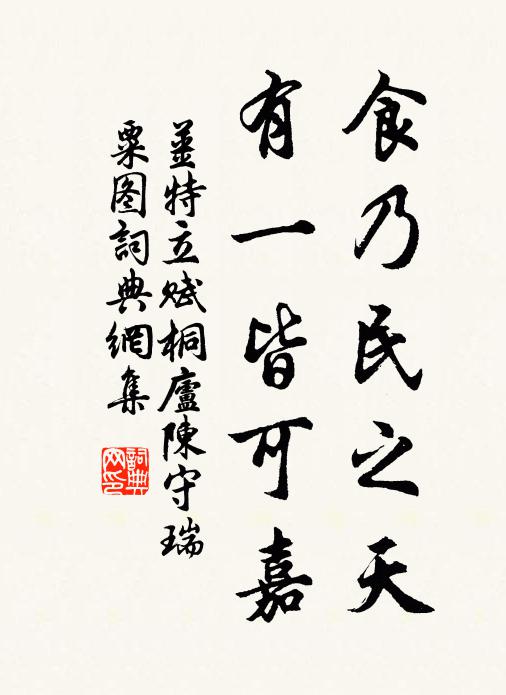 食乃民之天
有一皆可嘉
姜特立賦桐廬陳守瑞
粟图詞典網集
詞典
网印